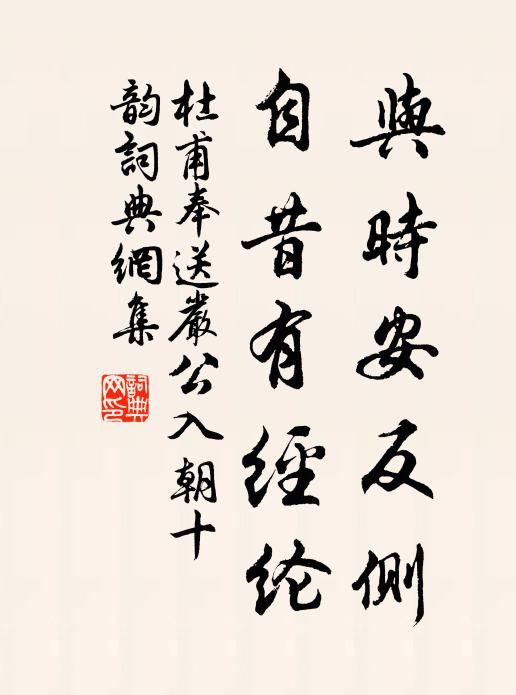 與時安反側
自昔有經纶
杜甫奉送嚴公入朝十
韵詞典網集
詞典网印